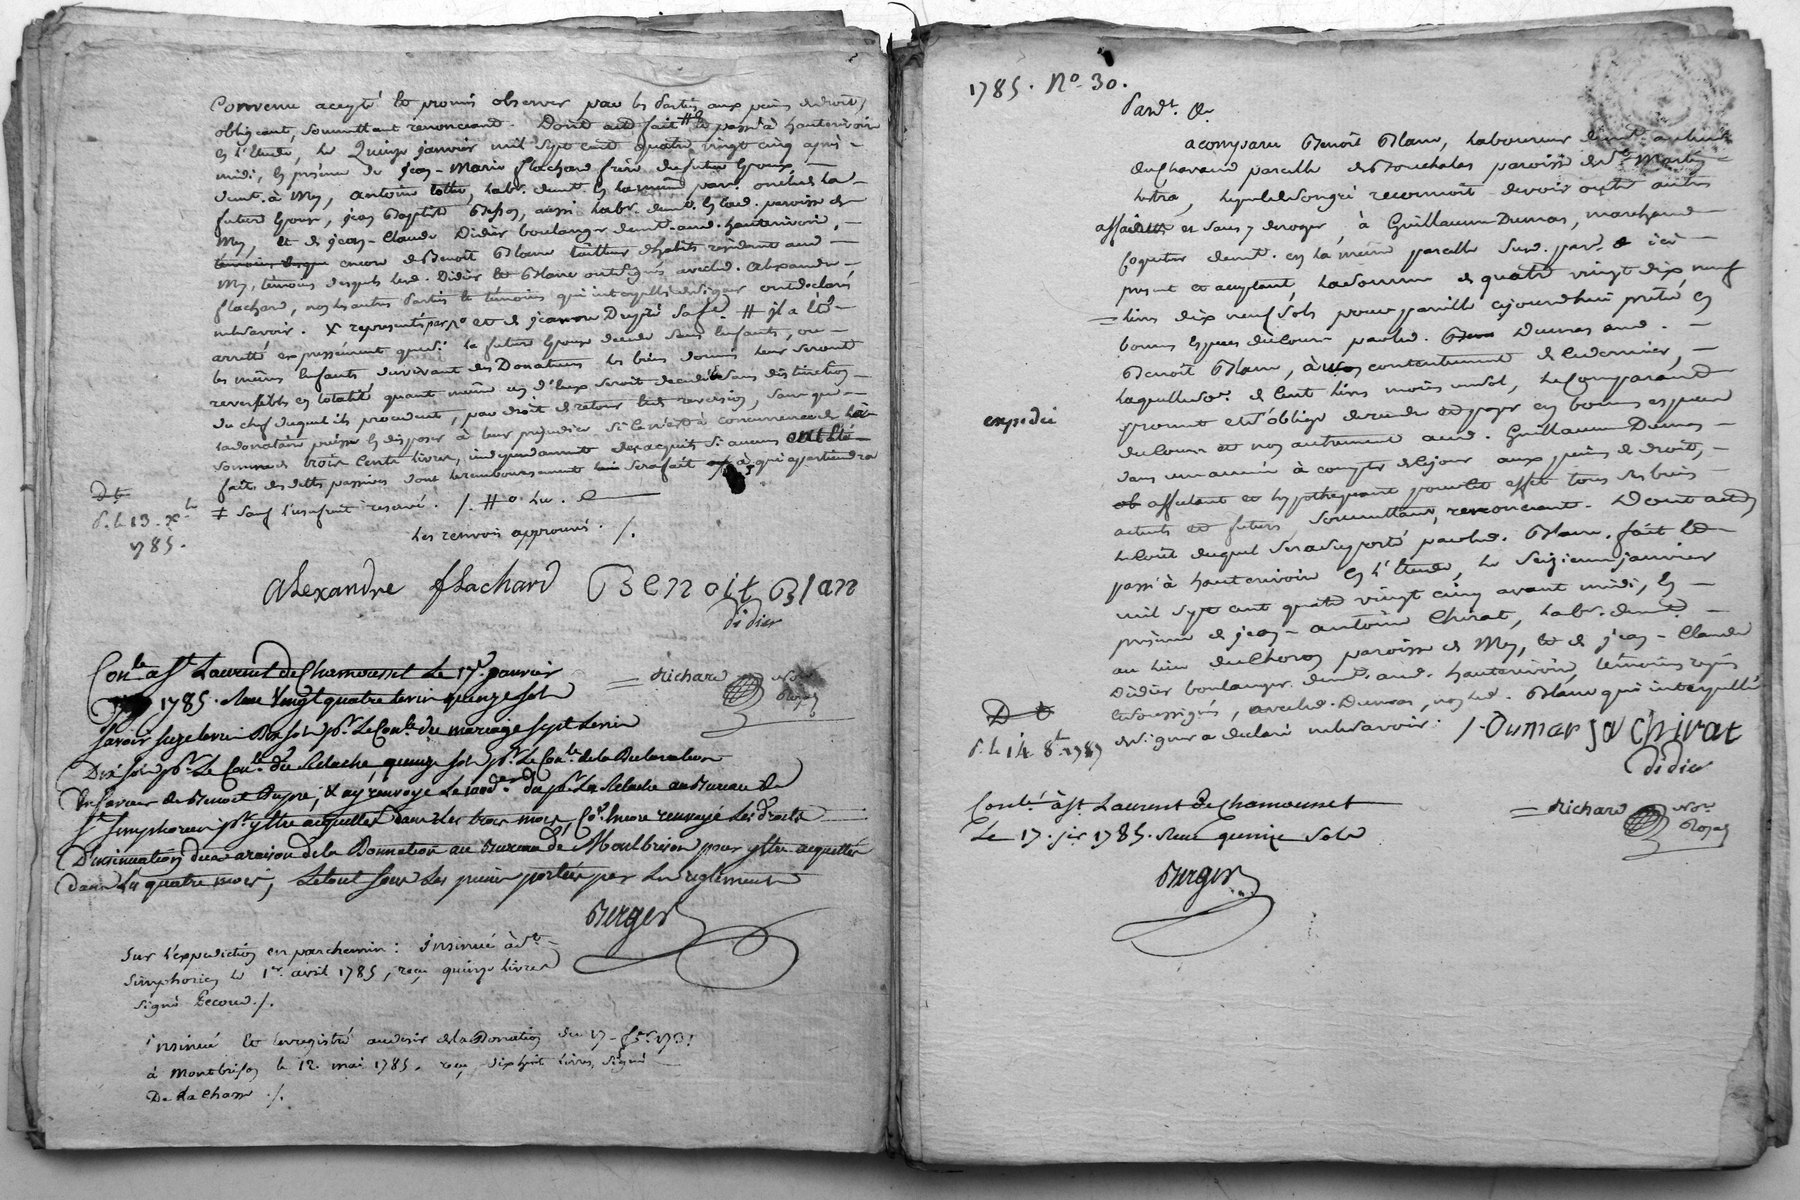 Convenu accepté et promis observer par les parties aux peines de droit,
obligeant, soumettant renonceant. Dont acte fait # et passé à hauterivoire
en l'Etude, le Quinze janvier mil sept cent quatre vingt cinq après-
midi, en présence de jean-Marie flachard frère du futur Epoux,
demt. à Mey, antoine lable. demt. en la même par. oncle de la
future Epouse, jean Baptiste aussi labr. demt. en lad. paroisse de
Mey, et de jean-Claude Didier boulanger demt. aud. hauterivoire,
encore de Benoît Blanc tailleur d'habits résident aud
Mey, témoins desquels led. Didier et Blanc ont signés avec led. Alexandre
flachard, non les autres parties et témoins qui interpellés de signer ont déclaré
ne le savoir. représentés par et de jeanne Dupré sa fe. # il a été
arretté expressément que si la future Epouse decede sans Enfants, ou
les mêmes Enfants survivant des Donateurs les biens donnés leur seront
reversibles en totalité quant même un d'Eux seroit decedé sans distinction
du chef duquel ils procedent, par droit de retour sans que
la donataire puisse en disposer à leur prejudice si ce n'est à concurrence de la
somme de trois Cents livres, independamment des acquits si aucuns ont été
faits des dettes passives dont le remboursement sera fait à qui appartiendra
sauf l'usufruit reservé. /. #
Les renvois approuvés. /.
Dt
d. le 13. xbre
1785.
Alexandre flachard Benoit Blan
didier
= Richard Nore.
Royal
Conlé. a St. Laurent de Chamousset Le 17e. janvier
1785. Reçu Vingt quatre Livres quinze Sols
Savoir seize livres sols pr. Le Conle. du mariage sept Livres
Dix sols pr. Le Conle. du Relache quinze sols pr. Le Conle. de la Declaration
En faveur de Benoit Dupré, & ay renvoyé le cent. dr. pr. Le Relache au Bureau de
St. Simphorien pr. y Etre acquitté dans Les trois mois, Encore renvoyé Les droits
D'insinuation dus a raison de la Donnation au Bureau de Montbrison pour y Etre acquittés
dans Les quatre mois, Le tout sous Les peines portées par Les reglements
Berger
Sur l'expedition en parchemin : insinué à St.-
Simphorien le 1er. avril 1785, reçu quinze livres
Signé Lecour. /.
insinué et Enregistré au desir de la Donation du 17
à Montbrison le 12. mai 1785. reçu dix huit livres, Signé
De La Chasse /.
1785. No. 30.
Pardt. &a.
a comparu Benoît Blanc, laboureur demt. au lieu
du Chavand parcelle des Bouchalas paroisse de St. Martin
lestra, lequel de son gré reconnoit devoir outre autres
affaires et sans y deroger, à Guillaume Dumas, marchand
coquetier demt. en la même parcelle susd. par. ici
présent et acceptant, la somme de quatre vingt dix neuf
livres dix neuf sols pour pareille ce jourd'hui prêtée en
bonnes Especes du cours par led. Dumas aud.
Benoît Blanc, à contentement de ce dernier,
laquelle so. de Cent livres moins un sol, le Comparant
promet et s'oblige de rendre et payer en bonnes especes
du cours et non autrement aud. Guillaume Dumas
dans un année à compter de ce jour aux peines de droit,
affectant et hypothequant pour cet effet tous ses biens
actuels et futurs soumettant, renonceant. Dont acte
le coût duquel sera suporté par led. Blanc. fait et
passé à hauterivoire en l'Etude, le Seizieme janvier
mil sept cent quatre vingt cinq avant midi, En
présence de jean-antoine Chirat, labr. demt.
au lieu du Choron paroisse de Mey, et de jean-Claude
Didier boulanger demt. aud. hauterivoire, témoins requis
et soussignés, avec led. Dumas, non led. Blanc qui interpellé
de signer a declaré ne le savoir. /.
expedié
Dt
d. le 14 8bre 1787
Dumas JA Chirat
Didier
= Richard Nore.
Royal
Conlé. à St. Laurent de Chamousset
Le 17. jer 1785. Reçu quinze Sols
Berger